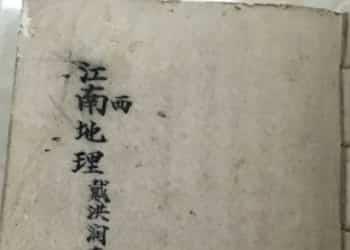 江南西地理
戴洪润